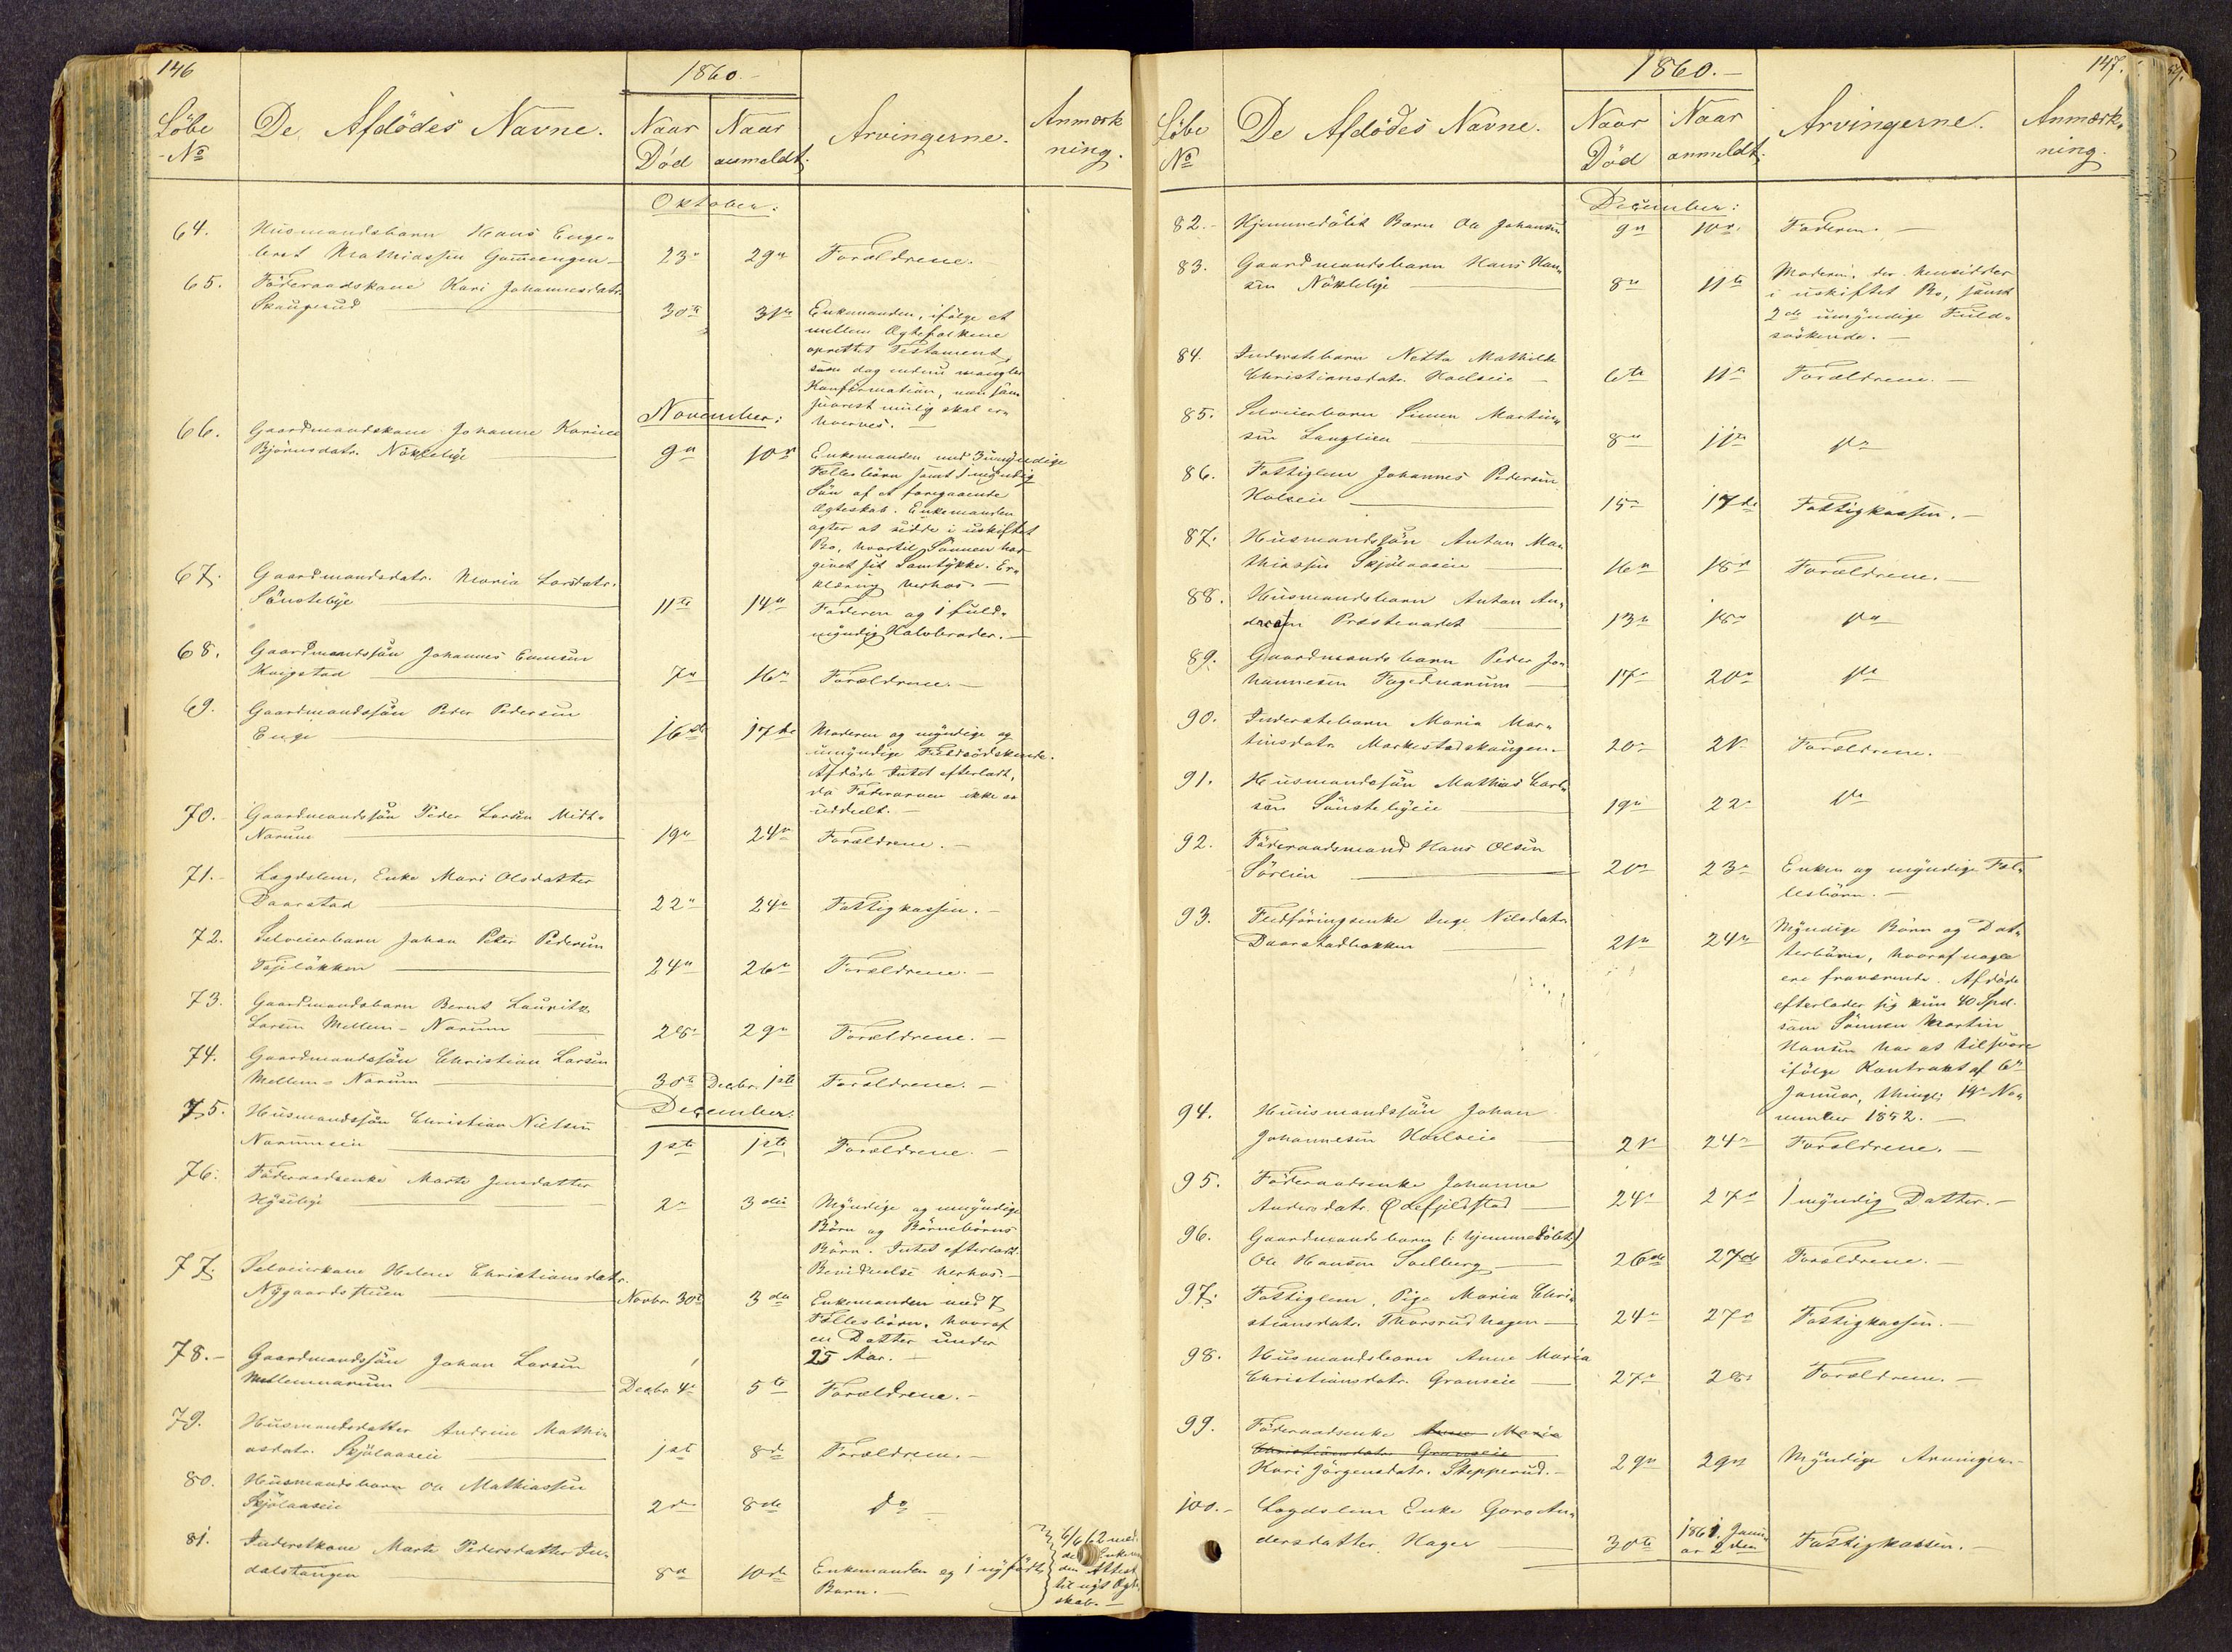 146
1860.-
Löbe No
De Afdödes Navne.
Naar Död
Naar anmeldt.
Arvingerne.
Anmærkning.
Oktober:
64.
Husmandsbarn Hans Enge-
bret Mathiassen Gommengen
23de
29de
Forældrene.
65.
Föderaadskone Kari Johannesdatr.
Skaugerud
30te
31te
Enkemanden, ifölge et
mellem Ægtefolkene
oprettet Testament,
som dog endnu mangler
Konfirmation, som
snarest mulig skal er-
hverves.
November:
66.
Gaardmandskone Johanne Karine
Björnsdatr. Nöklebye
9de
10de
Enkemanden med 3 umyndige
Fællesbörn samt 1 myndig
Sön af et foregaaende
Ægteskab. Enkemanden
agter at sidde i uskiftet
Bo, hvortil Sönnen har
givet sit Samtykke. Er-
klæring herhos.-
67.
Gaardmandsdatr. Maria Larsdatr.
Sönstebye
11te
14de
Faderen og 1 fuld-
myndig Halvbroder.-
68.
Gaardmandssön Johannes Evensen
Kvigstad
7de
16de
Forældrene.-
69.
Gaardmandssön Peder Pedersen
Enge
16de
17de
Moderen og myndige og
umyndige Fuldsödskende.
Afdöde Intet efterladt,
da Faderarven ikke er
uddeelt.-
70.-
Gaardmandssön Peder Larsen Midt-
Narum
19de
24de
Forældrene.-
71.-
Lægdslem, Enke Mari Olsdatter
Daarstad
22de
24de
Fattigkassen.-
72.
Selveierbarn Johan Peter Pedersen
24de
26de
Forældrene.-
73.
Gaardmandsbarn Bernt Lauritz
Larsen Mellem-Narum
28de
29de
Forældrene.-
74.
Gaardmandssön Christian Larsen
Mellem-Narum
30te
Decbr. 1ste
Forældrene.-
December:
75.
Husmandssön Christian Nielsen
Narumseie
1ste
1ste
Forældrene.-
76.
Föderaadsenke Marte Jensdatter
2de
3die
Myndige og umyndige
Börn og Börnebörns
Börn. Intet efterladt.
Bevidnelse herhos.-
77.
Selveierkone Helene Christiansdatr.
Nygaardsstuen
Novbr. 30te
3die
Enkemanden med 7
Fællesbörn, hvoraf
en Datter under
25 Aar.-
78.-
Gaardmandssön Johan Larsen
Mellemnarum
Decbr 4de
5te
Forældrene.-
79.
Husmandsdatter Andrine Mathi-
asdatr. Skjölaaseie
1ste
8de
Forældrene.-
80.
Husmandsbarn Ole Mathiassen
Skjölaaseie
2de
8de
do
81.
Inderstkone Marte Pedersdatter In-
dalstangen
8de
10de
Enkemanden og 1 nyfödt
Barn.-
6/6 62 med-
den Attest
til nyt Ægte-
skab.-
147.
1860.-
Löbe No
De Afdödes Navne.
Naar Död
Naar anmeldt.
Arvingerne.
Anmærkning.
December:
82.-
Hjemmedöbt Barn Ole Johansen
9de
10de
Faderen.-
83.
Gaardmandsbarn Hans Han-
sen Nöklebye
8de
11te
Moderen, der hensidder
i uskiftet Bo, samt
2de umyndige Fuld-
söskende.-
84.
Inderstebarn Netta Mathilde
Christiansdatr. Hoelseie
6te
11te
Forældrene.-
85.
Selveierbarn Simen Martin-
sen Langlien
8de
11te
do
86.
Fattiglem Johannes Pedersen
Holseie
15de
17de
Fattigkassen.-
87.
Husmandssön Anton Ma-
thiassen Skjölaaseie
16de
18de
Forældrene.-
88.
Husmandsbarn Anton An-
dreasen Præstevadet
13de
18de
do
89.
Gaardmandsbarn Peder Jo-
hannesen Fagernarum
17de
20de
do
90.
Inderstebarn Maria Mar-
tinsdatr. Markestadskaugen.
20de
21de
Forældrene.
91.
Husmandssön Mathias Carl-
sen Sönstebyeie
19de
22de
do
92.
Föderaadsmand Hans Olsen
Sörlien
20de
23de
Enken og myndige Fæl-
lesbörn.-
93.
Fledföringsenke Inge Nilsdatr.
Daarstadbakken
21de
24de
Myndige Börn og Dat-
terbörn, hvoraf nogle
ere fraværende. Afdöde
efterlader sig kun 40 Spd.
som Sönnen Martin
Hansen har at tilsvare
ifölge Kontrakt af 6te
Januar, thingl: 14de No-
vember 1852.-
94.
Husmandssön Johan
Johannesen Hoelseie
21de
24de
Forældrene.-
95.
Föderaadsenke Johanne
Andersdatr. Ödefjeldstad
24de
27de
1 myndig Datter.-
96.
Gaardmandsbarn (: hjemmedöbt:)
Ole Hansen Soelberg
26de
27de
Forældrene.-
97.
Fattiglem, Pige Maria Chri-
stiansdatr. Thorsrudhagen
24de
27de
Fattigkassen.-
98.
Husmandsbarn Anne Maria
Christiansdatr. Granseie
27de
28de
Forældrene.-
99.
Föderaadsenke Anne Maria
Christiansdatr. Granseie
Kari Jörgensdatr. Stepperud.-
29de
29de
Myndige Arvinger.-
100.-
Lægdslem Enke Goro An-
dersdatter Hager
30te
1861. Janu-
ar 2den
Fattigkassen.-